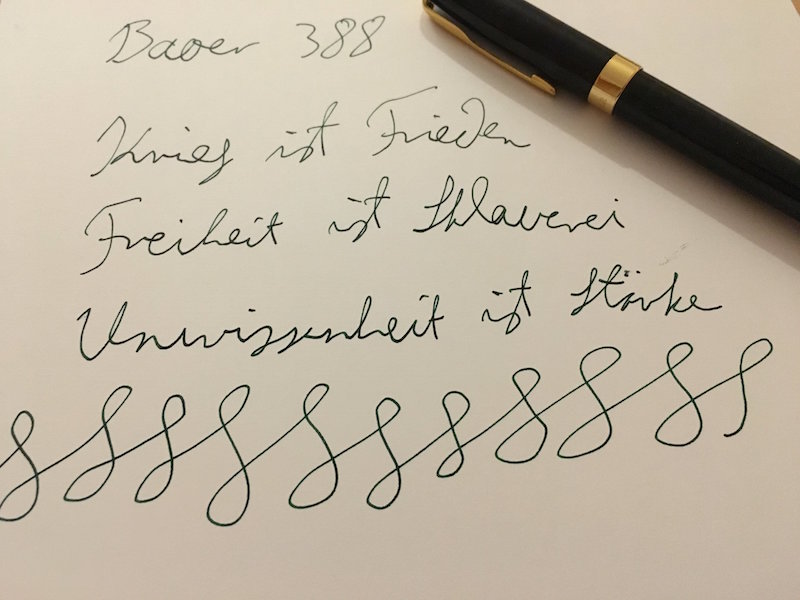 Baoer 388
Krieg ist Frieden
Freiheit ist Sklaverei
Unwissenheit ist Stärke